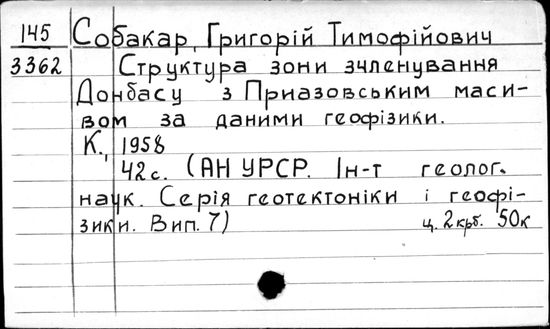 145 Собакар, Григорій Тимофійович
3362 Структура зони зчленування
Донбасу з Приазовським маси-
вом за даними геофізики.
К., 1958
42с. (АН УРСР. Ін-т геолог.
наук. Серія геотектоніки і геофі-
зики. Вип. 7) ц. 2крб. 50к